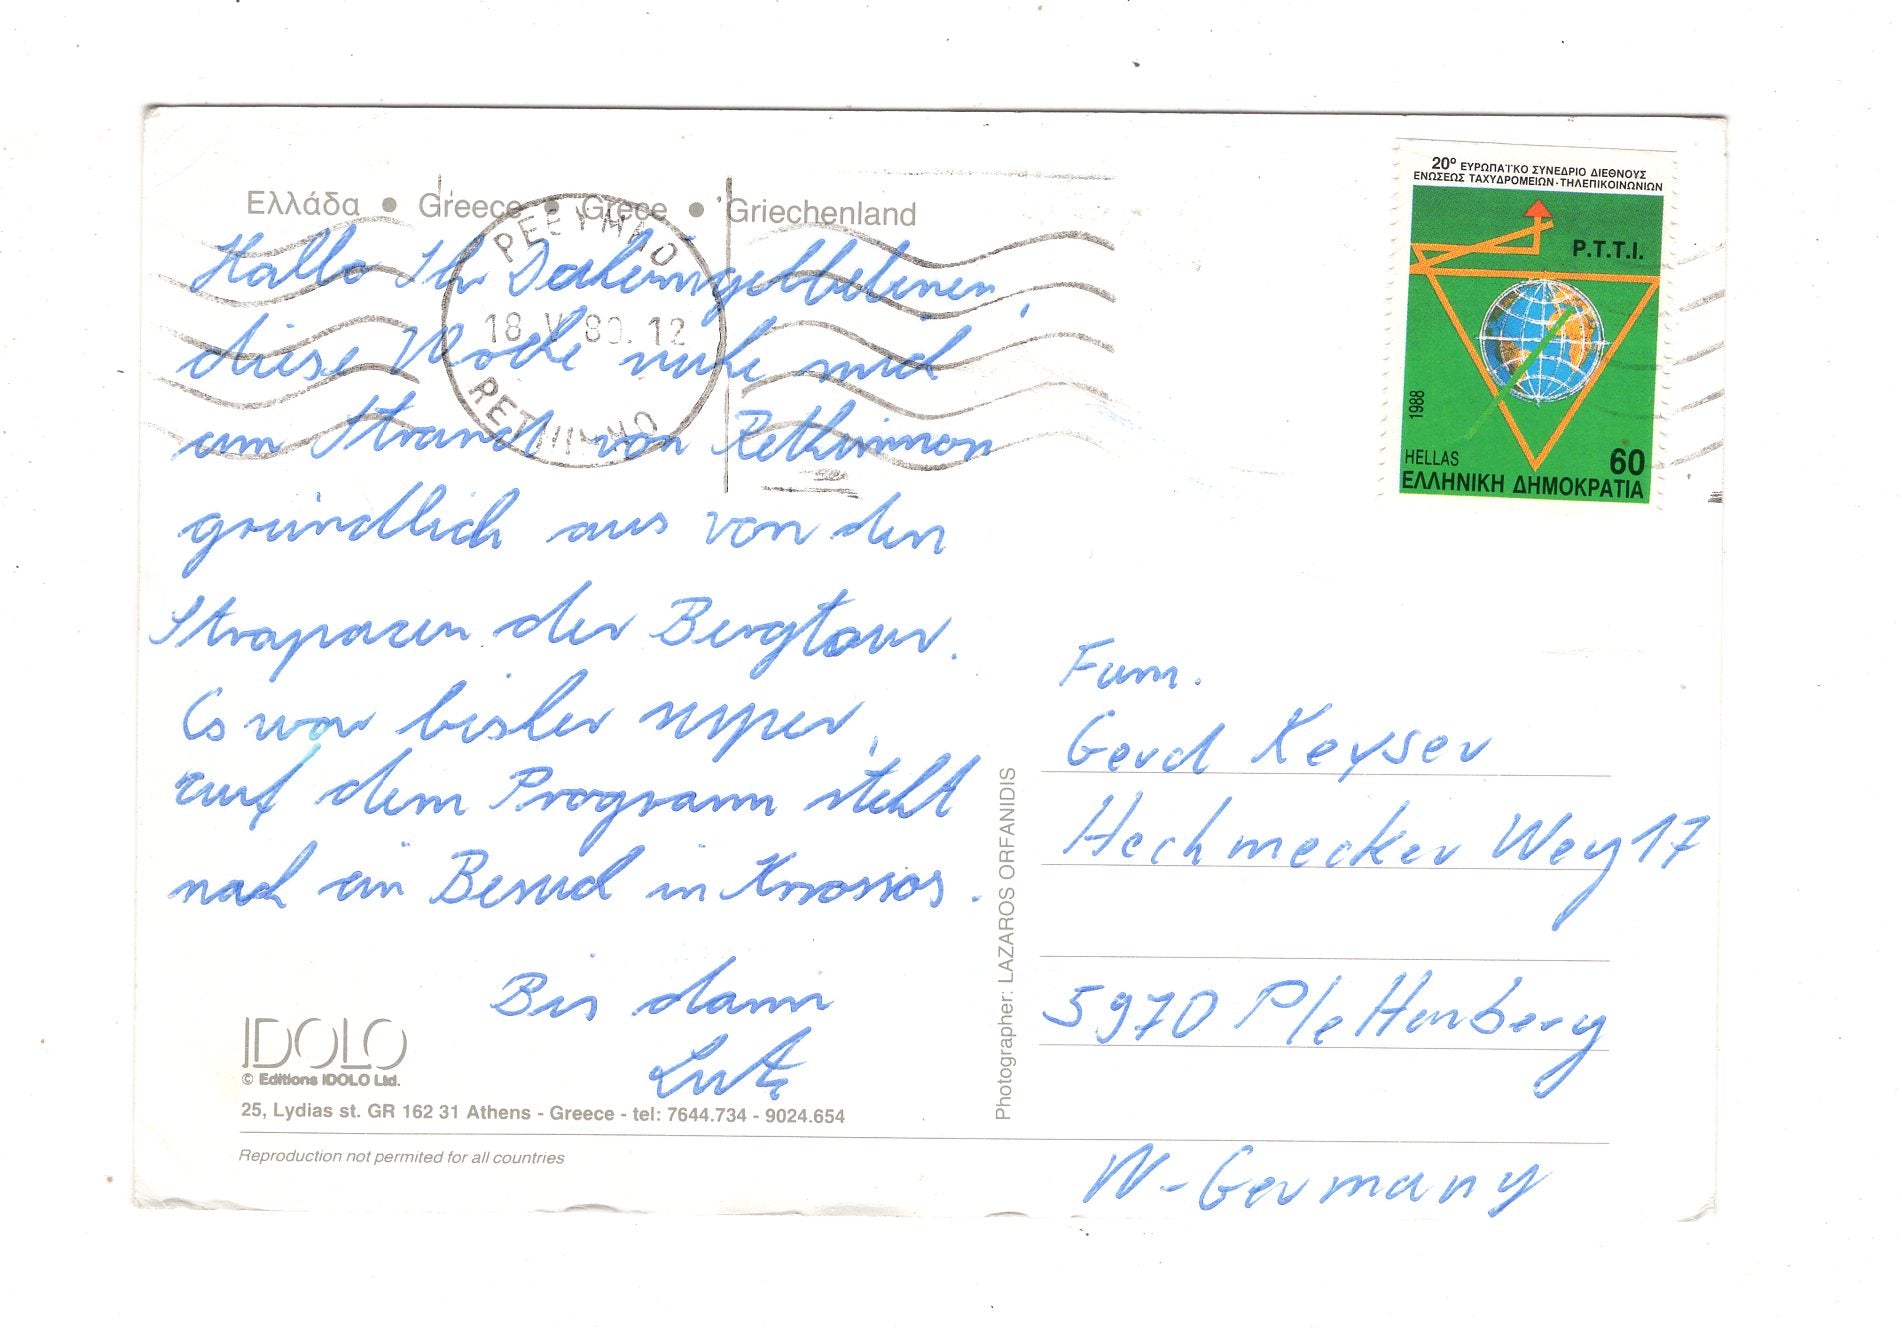 Ελλάδα • Greece • Grèce • Griechenland
ΡΕΘΥΜΝΟ
18 V 89. 12
RETHIMNO
Hallo Ihr Daheimgebliebenen,
diese Woche ruhe mich
am Strand von Rethimnon
gründlich aus von den
Strapazen der Bergtour.
Es war bisher super,
auf dem Programm steht
noch ein Besuch in Knossos.
Bis dann
Lutz
IDOLO
© Editions IDOLO Ltd.
25, Lydias st. GR 162 31 Athens - Greece - tel: 7644.734 - 9024.654
Reproduction not permited for all countries
Photographer: LAZAROS ORFANIDIS
20º ΕΥΡΩΠΑΪΚΟ ΣΥΝΕΔΡΙΟ ΔΙΕΘΝΟΥΣ
ΕΝΩΣΕΩΣ ΤΑΧΥΔΡΟΜΕΙΩΝ-ΤΗΛΕΠΙΚΟΙΝΩΝΙΩΝ
P.T.T.I.
1988
HELLAS
60
ΕΛΛΗΝΙΚΗ ΔΗΜΟΚΡΑΤΙΑ
Fam.
Gerd Keyser
Hechmecker Weg 17
5970 Plettenberg
W-Germany